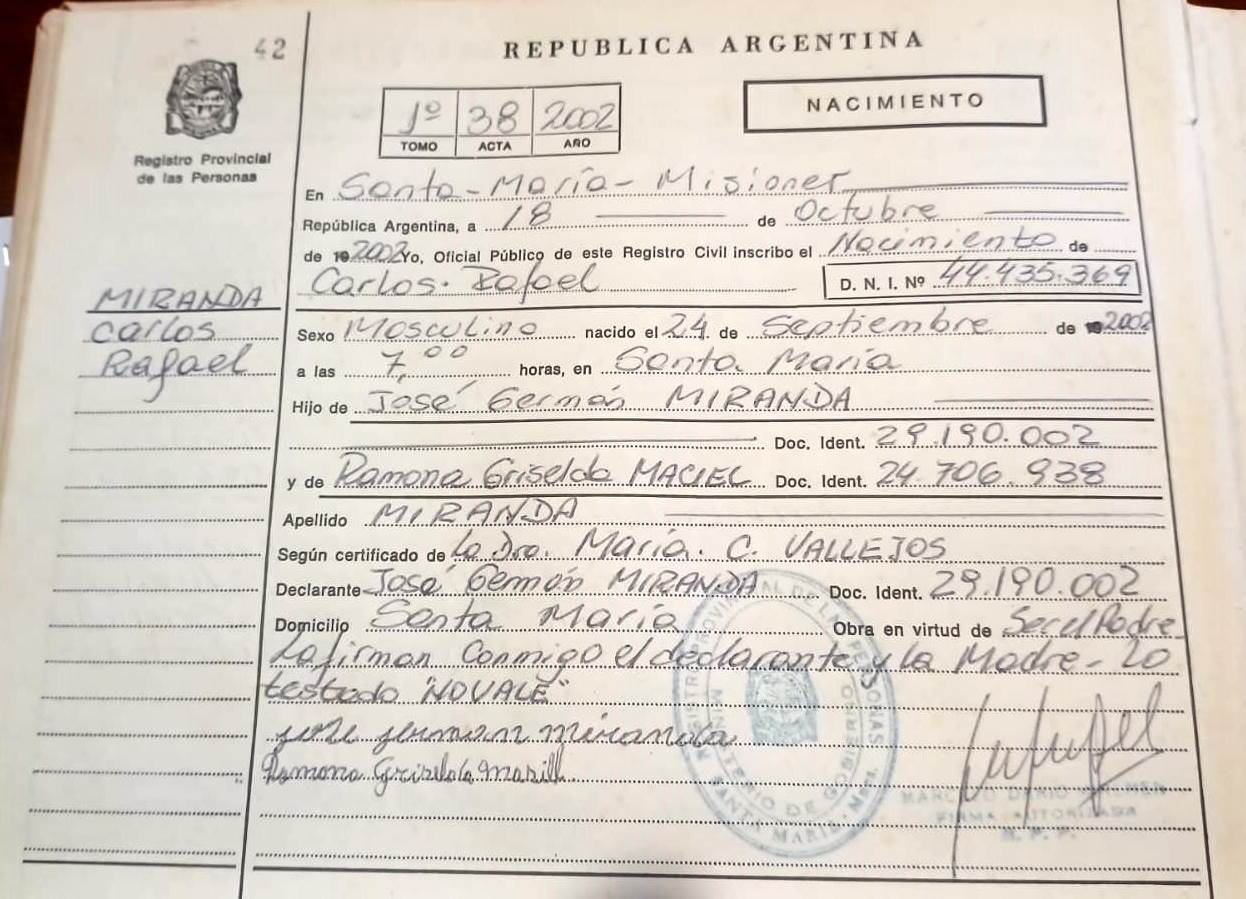 42
REPUBLICA ARGENTINA
Registro Provincial
de las Personas
1º 38 2002
TOMO ACTA AÑO
NACIMIENTO
En Santa-María-Misiones
República Argentina, a 18 de Octubre
de 192002 Yo, Oficial Público de este Registro Civil inscribo el Nacimiento de
Carlos. Rafael D. N. I. Nº 44.435.369
MIRANDA
Carlos
Rafael
Sexo Masculino nacido el 24 de Septiembre de 192002
a las 7,00 horas, en Santa. María
Hijo de José Germán MIRANDA
Doc. Ident. 29.190.002
y de Ramona Griselda MACIEL Doc. Ident. 24.706.938
Apellido MIRANDA
Según certificado de la Dra. María. C. VALLEJOS
Declarante José Germán MIRANDA Doc. Ident. 29.190.002
Domicilio Santa María Obra en virtud de Ser el Padre
La firman Conmigo el declarante y la Madre- Lo
testado "NO VALE"
jose jerman miranda
Ramona Griselda
REGISTRO PROVINCIAL DE LAS PERSONAS
MINISTERIO DE GOBIERNO
SANTA MARIA - Mnes.
DARIO
FIRMA AUTORIZADA
R. P. P.